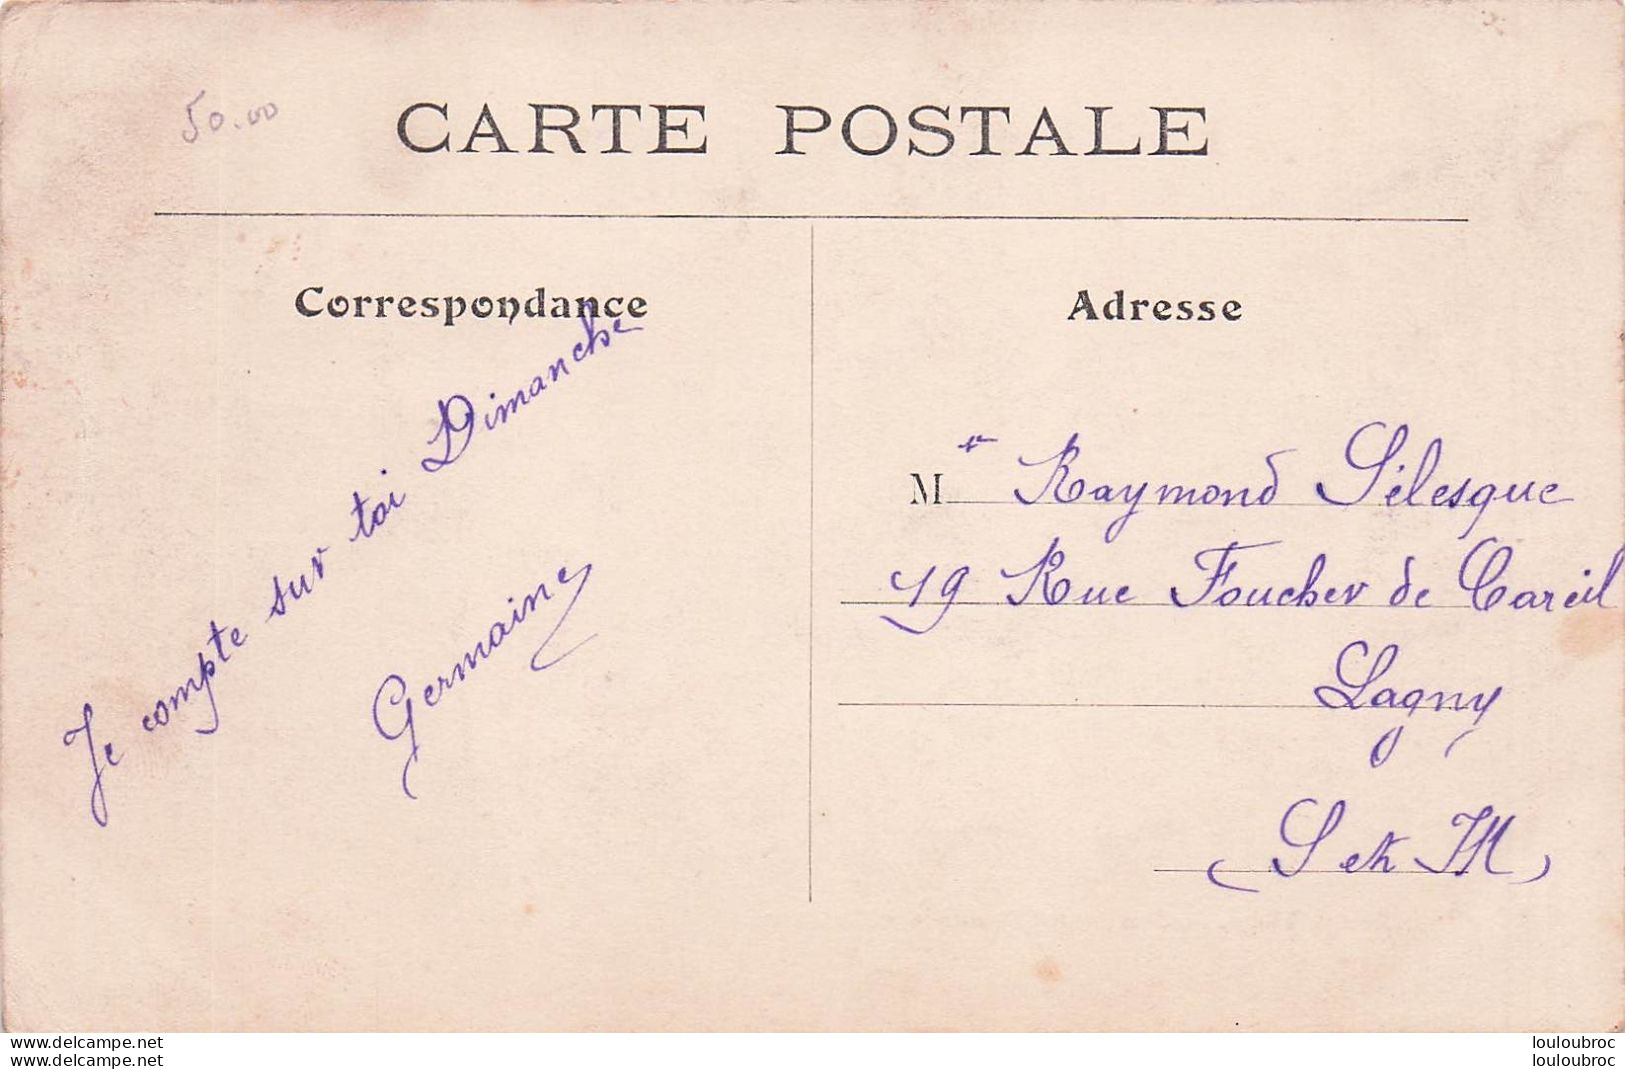 50.00
CARTE POSTALE
Correspondance
Je compte sur toi Dimanche
Germaine
Adresse
M r Raymond Sélesque
19 Rue Foucher de Careil
Lagny
(S et M)
www.delcampe.net
www.delcampe.net
louloubroc
louloubroc